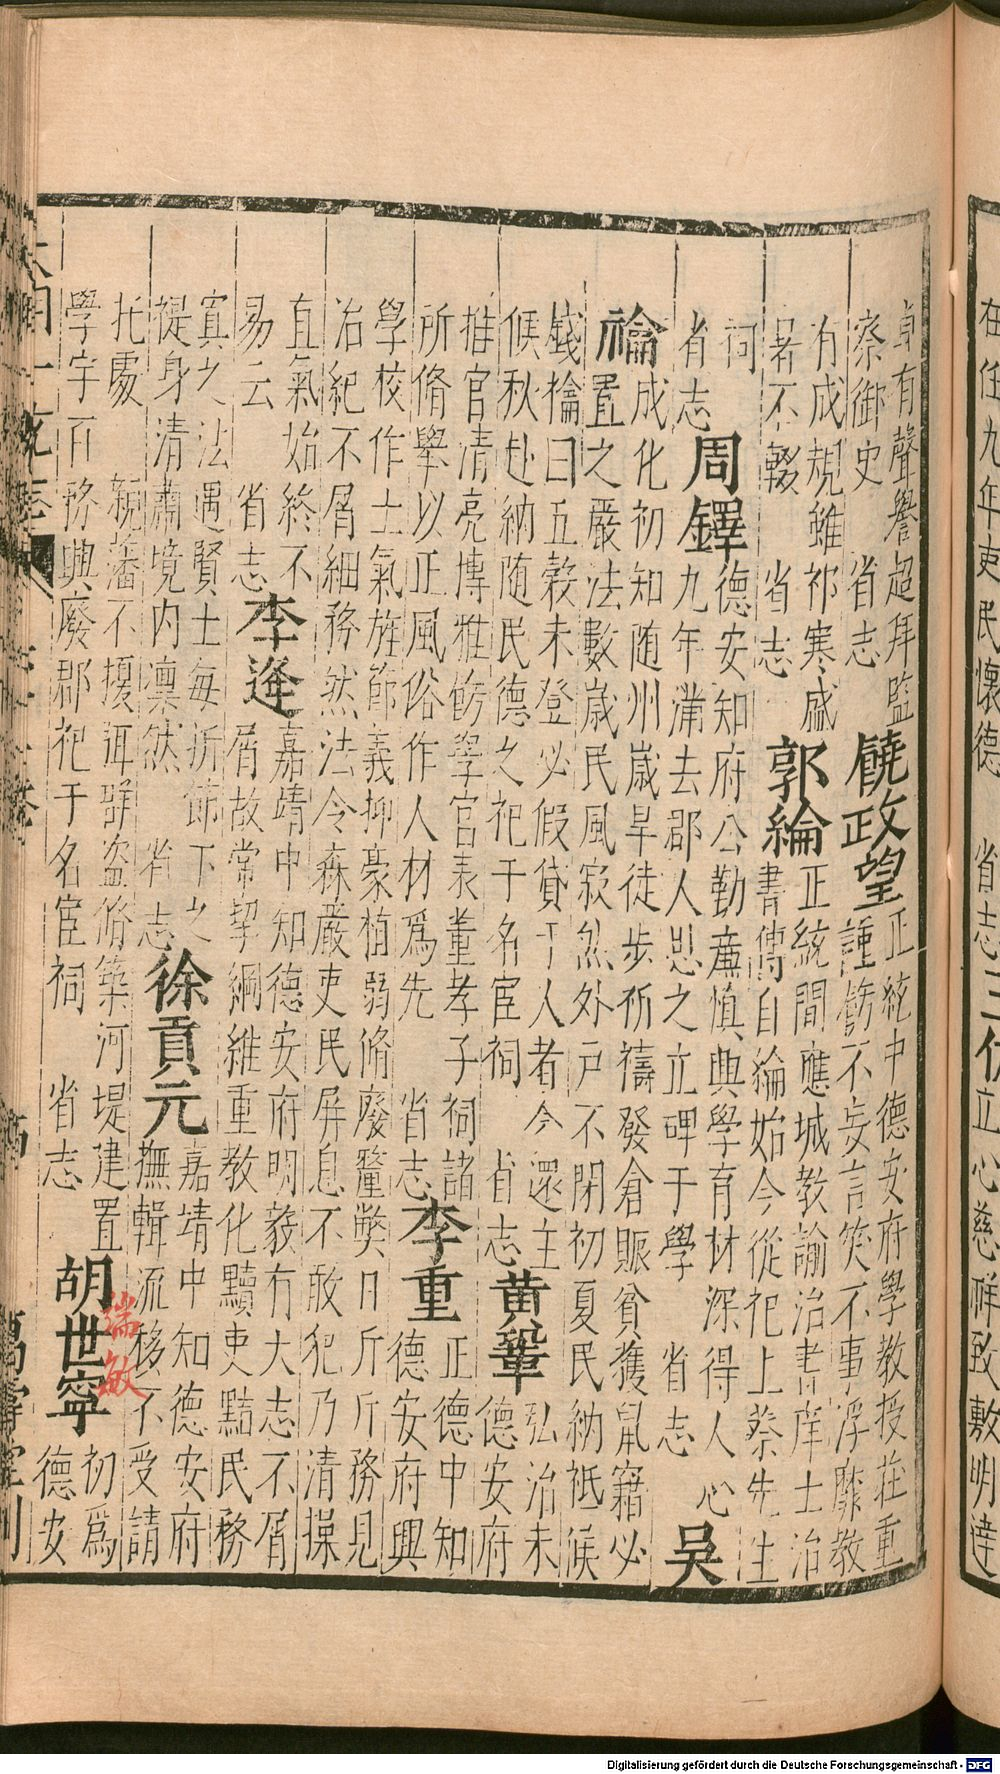 在任九年吏民懷德 省志 立心慈祥致敷明達
卓有聲譽超拜監
察御史 省志
饒政望
正統中德安府學教授莊重
謹飭不妄言笑不事浮靡教
有成規雖祁寒盛
暑不輟 省志
郭綸
正統間應城教諭治書庠士治
書傳自綸始今從祀上蔡先生
祠
省志
周鐸
德安知府公勤廉慎興學育材深得人心
九年滿去郡人思之立碑于學 省志
吳
禴
成化初知随州歲旱徒步祈禱發倉賑貧獲鼠竊必
置之嚴法數歲民風寂然外戶不閉初夏民納祗候
錢禴曰五穀未登必假貸于人者今還主
候秋赴納随民德之祀于名宦祠 省志
黃鞏
弘治末
德安府
推官清亮博雅飭學官表董孝子祠諸
所脩舉以正風俗作人材爲先 省志
李重
正德中知
德安府興
學校作士氣旌節義抑豪植弱脩廢釐弊日斤斤務見
治紀不屑細務然法令森嚴吏民屏息不敢犯乃清操
直氣始終不
易云 省志
李逢
嘉靖中知德安府明毅有大志不屑
屑故常挈綱維重教化黷吏黠民務
寘之法遇賢士每折節下之
禔身清肅境内凜然 省志
徐貢元
嘉靖中知德安府
撫輯流移不受請
托處 親藩不擾弭群盜脩築河堤建置
學宇百務興廢郡祀于名宦祠 省志
胡世寧
瑞敏
初爲
德安
一統志
萬壽堂刊
Digitalisierung gefördert durch die Deutsche Forschungsgemeinschaft - DFG